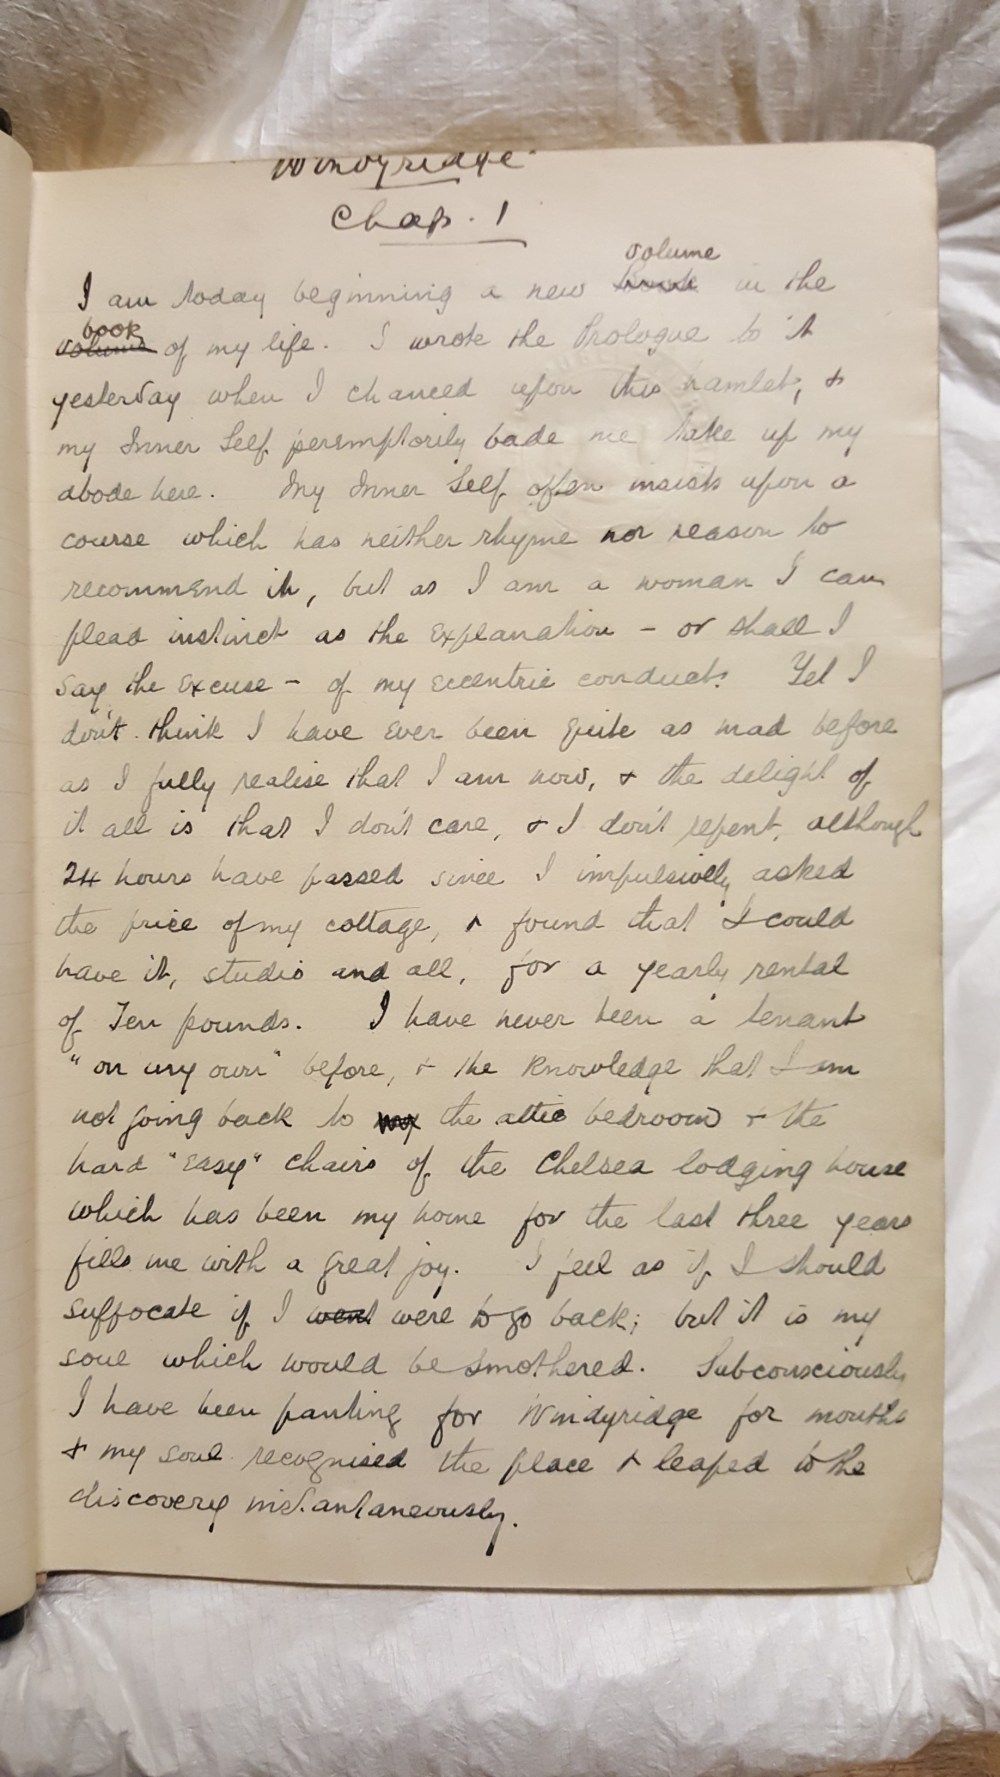 Windyridge
Chap. 1
volume
I am today beginning a new book in the
book
volume of my life. I wrote the Prologue to it
yesterday when I chanced upon this hamlet, &
my Inner Self peremptorily bade me take up my
abode here. My Inner Self often insists upon a
course which has neither rhyme nor reason to
recommend it, but as I am a woman I can
plead instinct as the explanation – or shall I
say the excuse – of my eccentric conduct. Yet I
don't think I have ever been quite as mad before
as I fully realise that I am now, & the delight of
it all is that I don't care, & I don't repent, although
24 hours have passed since I impulsively asked
the price of my cottage, & found that I could
have it, studio and all, for a yearly rental
of Ten pounds. I have never been a tenant
"on my own" before, & the knowledge that I am
not going back to my the attic bedroom & the
hard "easy" chairs of the Chelsea lodging house
which has been my home for the last three years
fills me with a great joy. I feel as if I should
suffocate if I went were to go back; but it is my
soul which would be smothered. Subconsciously
I have been panting for Windyridge for months
& my soul recognised the place & leaped to the
discovery instantaneously.